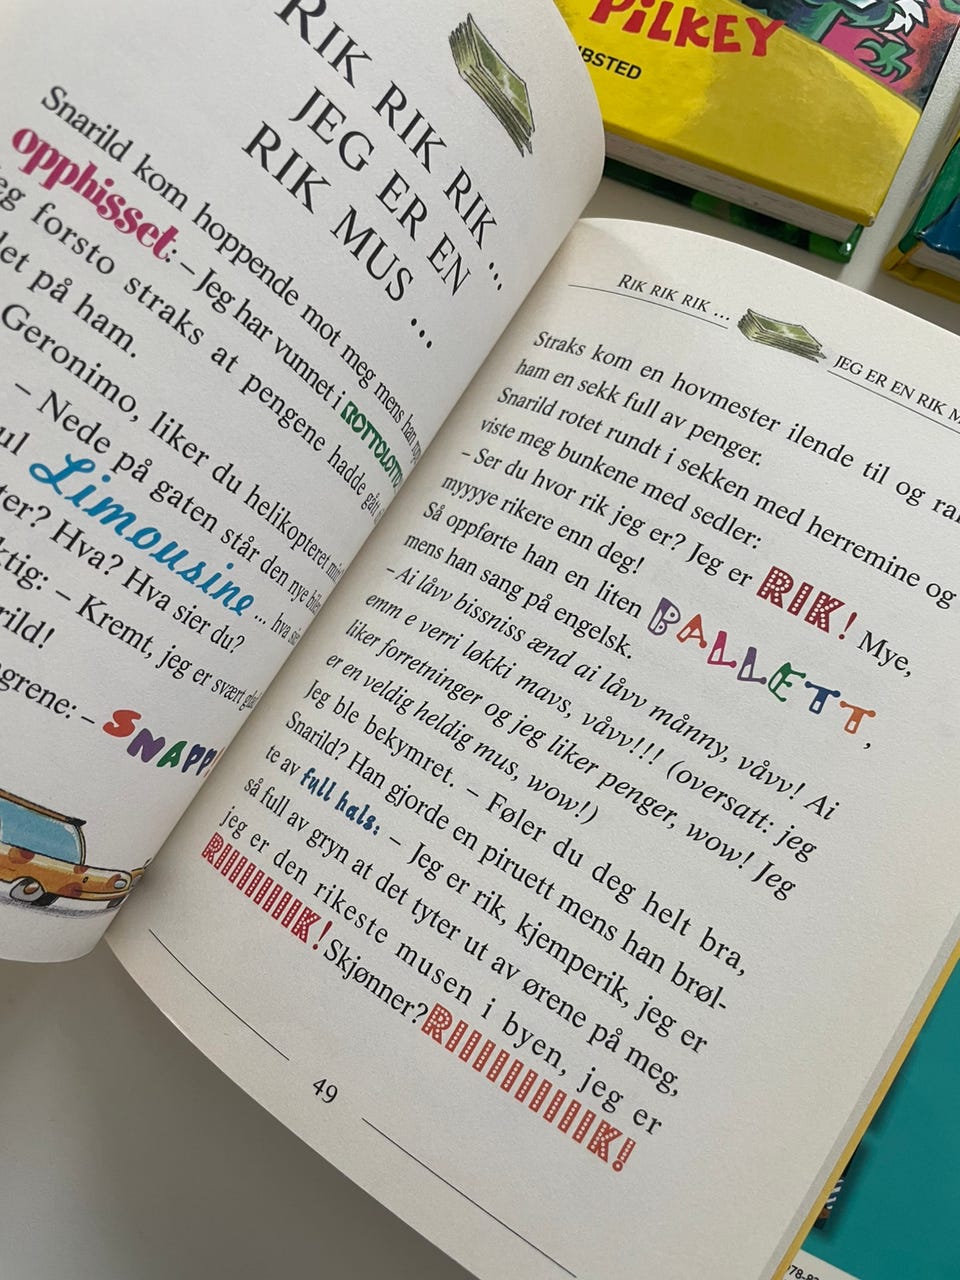 RIK RIK RIK ...
JEG ER EN
RIK MUS ...
Snarild kom hoppende mot meg mens han
opphisset: – Jeg har vunnet i ROTTOLOTTO
forsto straks at pengene hadde gått
på ham.
Geronimo, liker du helikopteret
– Nede på gaten står den nye
Limousine ... hva
Hva? Hva sier du?
– Kremt, jeg er svært
– SNAPP!
RIK RIK RIK ...
JEG ER EN RIK
Straks kom en hovmester ilende til og
ham en sekk full av penger.
Snarild rotet rundt i sekken med herremine og
viste meg bunkene med sedler:
– Ser du hvor rik jeg er? Jeg er RIK! Mye,
myyyye rikere enn deg!
Så oppførte han en liten BALLETT,
mens han sang på engelsk.
– Ai låvv bissniss ænd ai låvv månny, våvv! Ai
emm e verri løkki mavs, våvv!!! (oversatt: jeg
liker forretninger og jeg liker penger, wow! Jeg
er en veldig heldig mus, wow!)
Jeg ble bekymret. – Føler du deg helt bra,
Snarild? Han gjorde en piruett mens han brøl-
te av full hals: – Jeg er rik, kjemperik, jeg er
så full av gryn at det tyter ut av ørene på meg,
jeg er den rikeste musen i byen, jeg er
RIIIIIIIIIK! Skjønner? RIIIIIIIIIIIK!
49
PILKEY